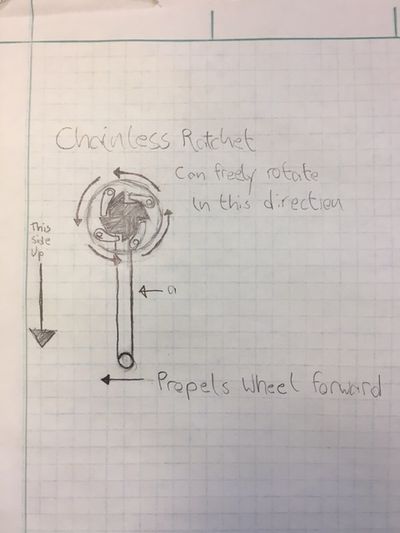 Chainless Ratchet
Can freely rotate
In this direction
This
side
Up
a
Propels Wheel forward